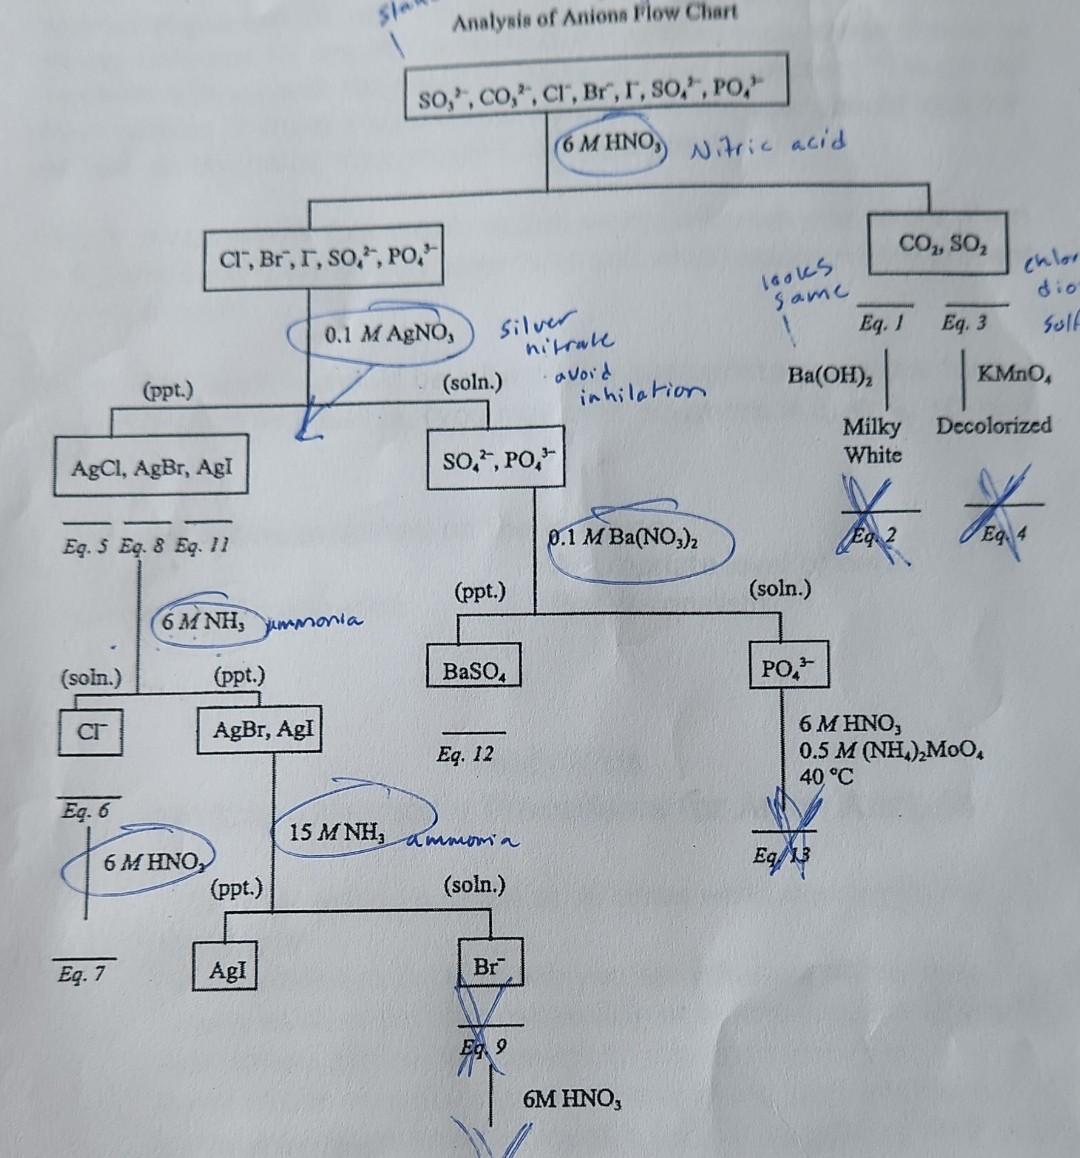 Analysis of Anions Flow Chart
SO₃²⁻, CO₃²⁻, Cl⁻, Br⁻, I⁻, SO₄²⁻, PO₄³⁻
6 M HNO₃ Nitric acid
Cl⁻, Br⁻, I⁻, SO₄²⁻, PO₄³⁻
CO₂, SO₂
looks
same
Eq. 1 Eq. 3
0.1 M AgNO₃
silver
nitrate
avoid
inhilation
Ba(OH)₂
KMnO₄
(ppt.)
(soln.)
Milky
White
Decolorized
AgCl, AgBr, AgI
SO₄²⁻, PO₄³⁻
Eq. 2
Eq. 4
Eq. 5 Eq. 8 Eq. 11
0.1 M Ba(NO₃)₂
(ppt.)
(soln.)
6 M NH₃ ammonia
BaSO₄
PO₄³⁻
(soln.)
(ppt.)
Cl⁻
AgBr, AgI
Eq. 12
6 M HNO₃
0.5 M (NH₄)₂MoO₄
40 °C
Eq. 13
Eq. 6
15 M NH₃ ammonia
6 M HNO₃
(ppt.)
(soln.)
Eq. 7
AgI
Br⁻
Eq. 9
6M HNO₃